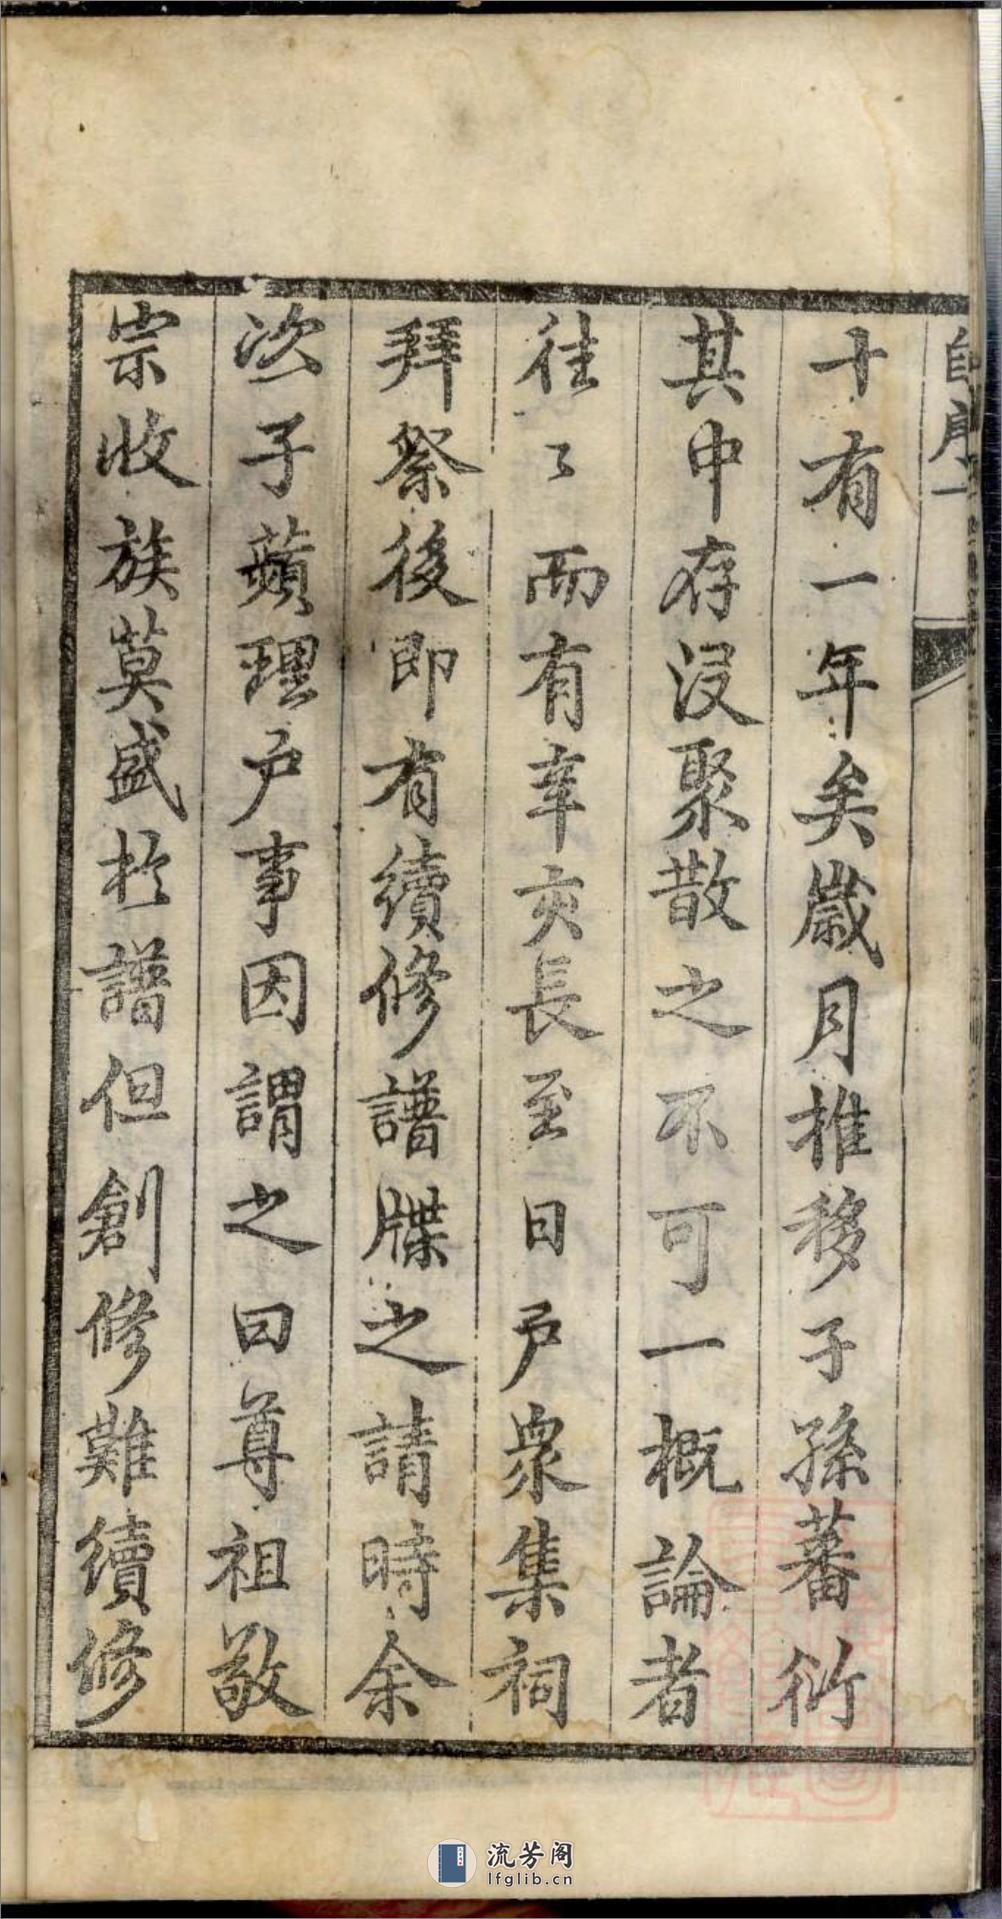 自序 一
十有一年矣歲月推移子孫蕃衍
其中存沒聚散之不可一概論者
往々而有辛亥長至日戶衆集祠
拜祭後即有續修譜牒之請時余
次子蘋理戶事因謂之曰尊祖敬
宗收族莫盛於譜但創修難續修
流芳阁
lfglib.cn